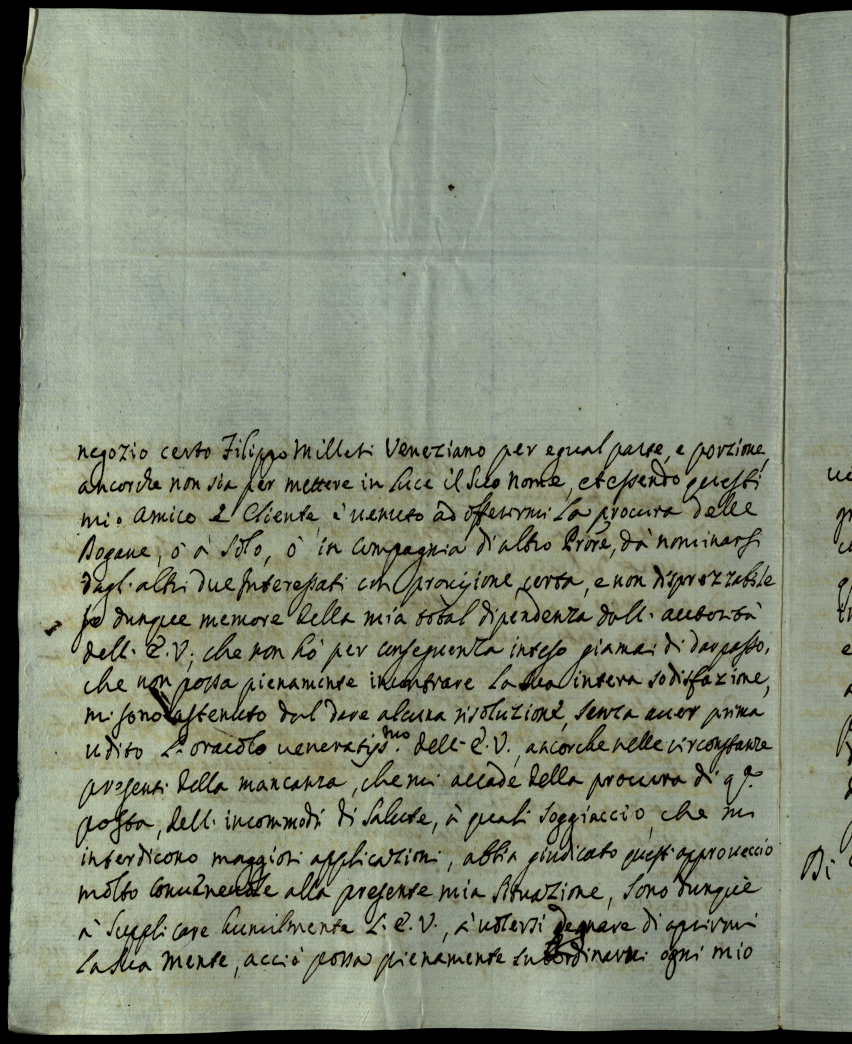 negozio certo Filippo Milleti Veneziano per egual parte, e porzione,
ancorche non sia per mettere in luce il suo nome, et essendo questi
mio Amico e Cliente è venuto ad offerirmi la procura delle
Dogane, ò à solo, ò in compagnia di altro Prore, da nominarsi
dagl'altri due Interessati con provigione certa, e non disprezzabile
Io dunque memore della mia total dipendenza dall'autorità
dell'E.V., che non hò per conseguenza inteso giamai di dar passo,
che non possa pienamente incontrare la sua intera sodisfazione,
mi sono astenuto dal dare alcuna risoluzione, senza aver prima
udito l'oracolo veneratissmo dell'E.V., ancorche nelle circonstanze
presenti della mancanza, che mi accade della procura di qa
posta, dell'incommodi di salute, à quali soggiaccio, che mi
interdicono maggiori applicazioni, abbia giudicato quest'approveccio
molto conveniente alla presente mia situazione, sono dunque
à supplicare humilmente l'E.V., à volersi degnare di aprirmi
la sua mente, acciò possa pienamente subordinarvi ogni mio
Di